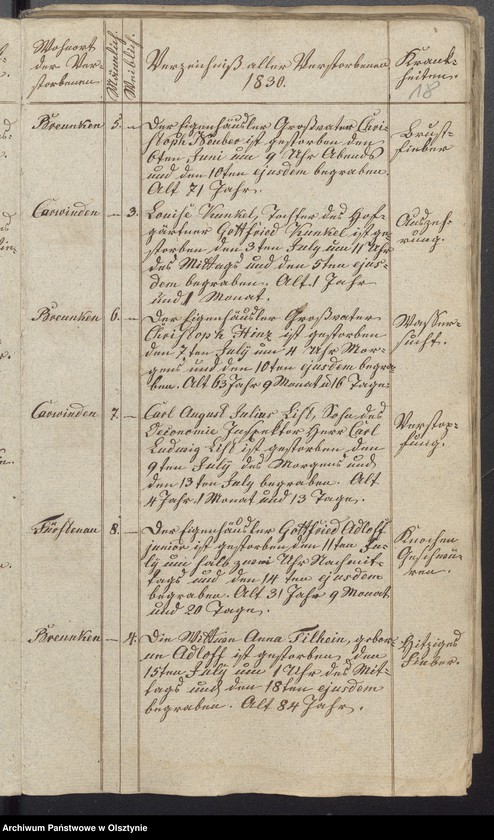 Wohnort
der Ver-
storbenen.
Männlich
Weiblich.
Verzeichniß aller Verstorbenen
1830.
Krank-
heiten.
18
Breunken 5. — Der Eigenhäusler Großvater Chri-
stoph Neuber ist gestorben den
6ten Juni um 9 Uhr Abends
und den 10ten ejusdem begraben.
Alt 71 Jahr.
Brust-
fieber
Carwinden — 3. Louise Kunkel, Tochter des Hof-
gärtner Gottfried Kunkel ist ge-
storben den 3ten July um 11 Uhr
des Mittags und den 5ten ejus-
dem begraben. Alt 1 Jahr
und 1 Monat.
Auszeh-
rung.
Breunken 6. — Der Eigenhäusler Großvater
Christoph Hinz ist gestorben
den 7ten July um 4 Uhr Mor-
gens und den 10ten ejusdem begra-
ben. Alt 63 Jahr 9 Monat u 16 Tage
Wasser-
sucht.
Carwinden 7. — Carl August Julius List, Sohn des
Oeconomie Inspektor Herr Carl
Ludwig List ist gestorben den
9ten July des Morgens und
den 13ten July begraben. Alt
4 Jahr 1 Monat und 13 Tage.
Verstop-
fung.
Fürstenau 8. — Der Eigenhäusler Gottfried Adloff
junior ist gestorben den 11ten Ju-
ly um halb zwei Uhr Nachmit-
tags und den 14ten ejusdem
begraben. Alt 31 Jahr 9 Monat
und 20 Tage.
Knochen
Geschwü-
ren.
Breunken — 4. Die Wittwe Anna Filhein, gebor-
ne Adloff ist gestorben den
15ten July um 1 Uhr des Mit-
tags und den 18ten ejusdem
begraben. Alt 84 Jahr.
Hitziges
Fieber.
Archiwum Państwowe w Olsztynie